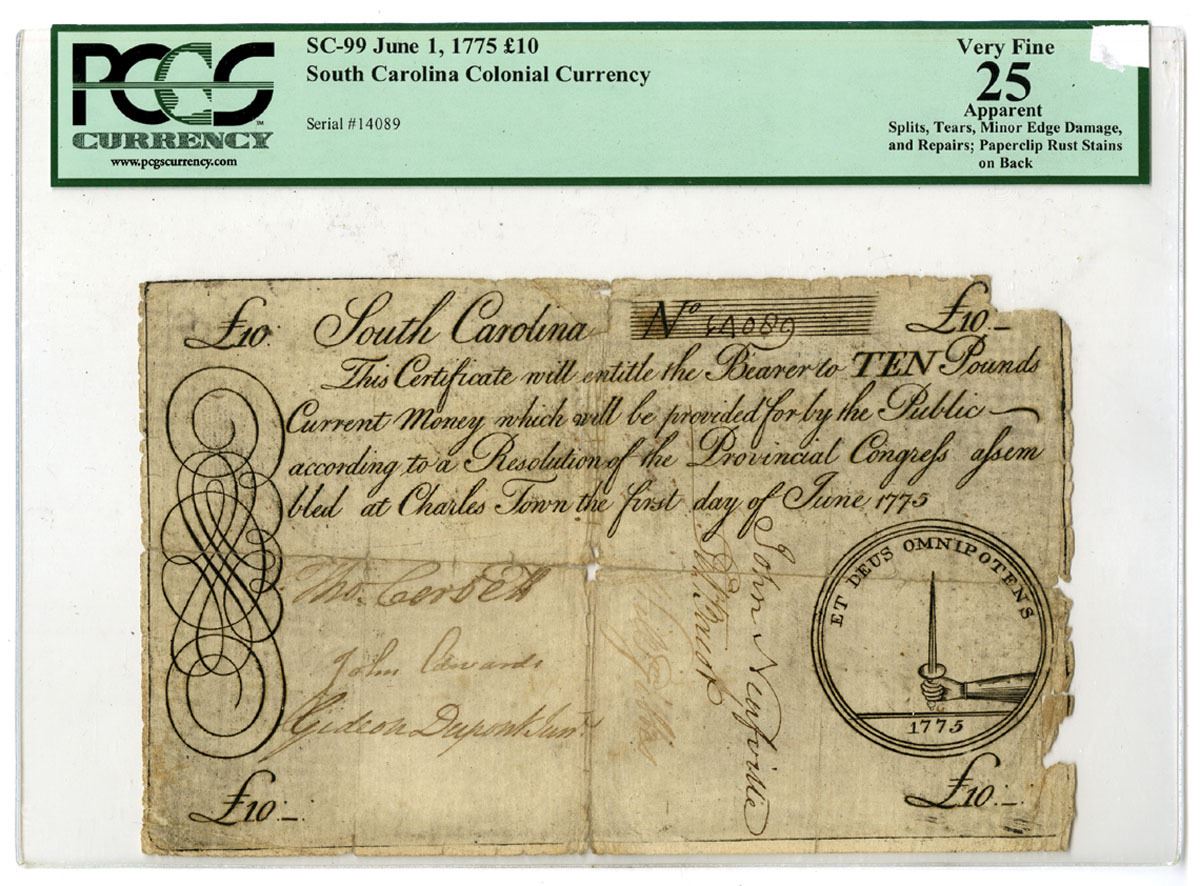 PCGS
CURRENCY
www.pcgscurrency.com
SC-99 June 1, 1775 £10
South Carolina Colonial Currency
Serial #14089
Very Fine
25
Apparent
Splits, Tears, Minor Edge Damage,
and Repairs; Paperclip Rust Stains
on Back
£10. South Carolina No 14089 £10.
This Certificate will entitle the Bearer to TEN Pounds
Current Money which will be provided for by the Public
according to a Resolution of the Provincial Congreſs aſsem
bled at Charles Town the first day of June 1775
ET DEUS OMNIPOTENS
1775
Tho. Corbett
John Edwards
Gideon Dupont Junr
John Neufville
£10. £10.